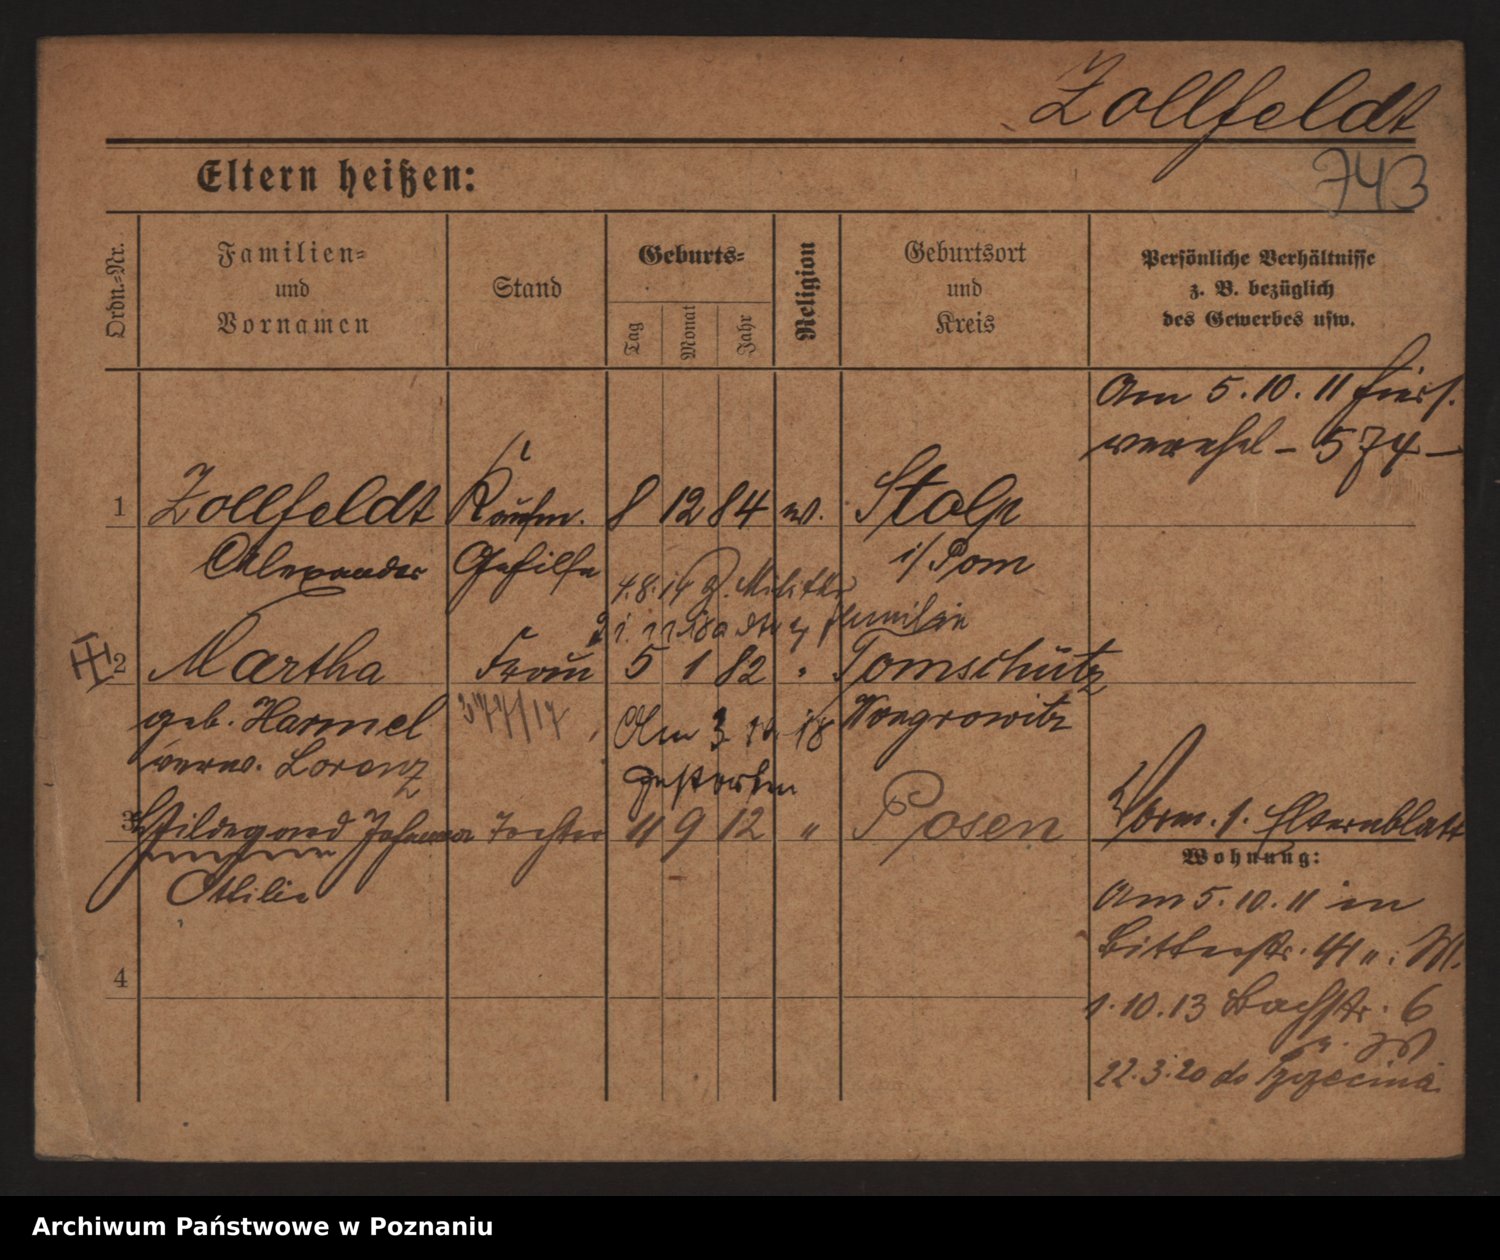 Zollfeldt
743
Eltern heißen:
Ordn.-Nr.
Familien-
und
Vornamen
Stand
Geburts-
Tag
Monat
Jahr
Religion
Geburtsort
und
Kreis
Persönliche Verhältnisse
z. B. bezüglich
des Gewerbes usw.
Am 5.10.11 hiers.
verehel - 574 -
1 Zollfeldt Kaufm. 8 12 84 ev. Stolp
Alexander Gehilfe i/Pom
4.8.14 z. Militär
Familie
2 Martha Frau 5 1 82 " Tomschütz
geb. Harmel 377/17 Am 3 10 18 Wongrowitz
verw. Lorenz gestorben
3 Hildegard Johanna Tochter 11 9 12 " Posen
Ottilie
Vorm. s. Elternblatt
Wohnung:
Am 5.10.11 in
Bitterstr. 41 u. M.
1.10.13 Bachstr. 6
22.3.20 do Szczecina
4
Archiwum Państwowe w Poznaniu